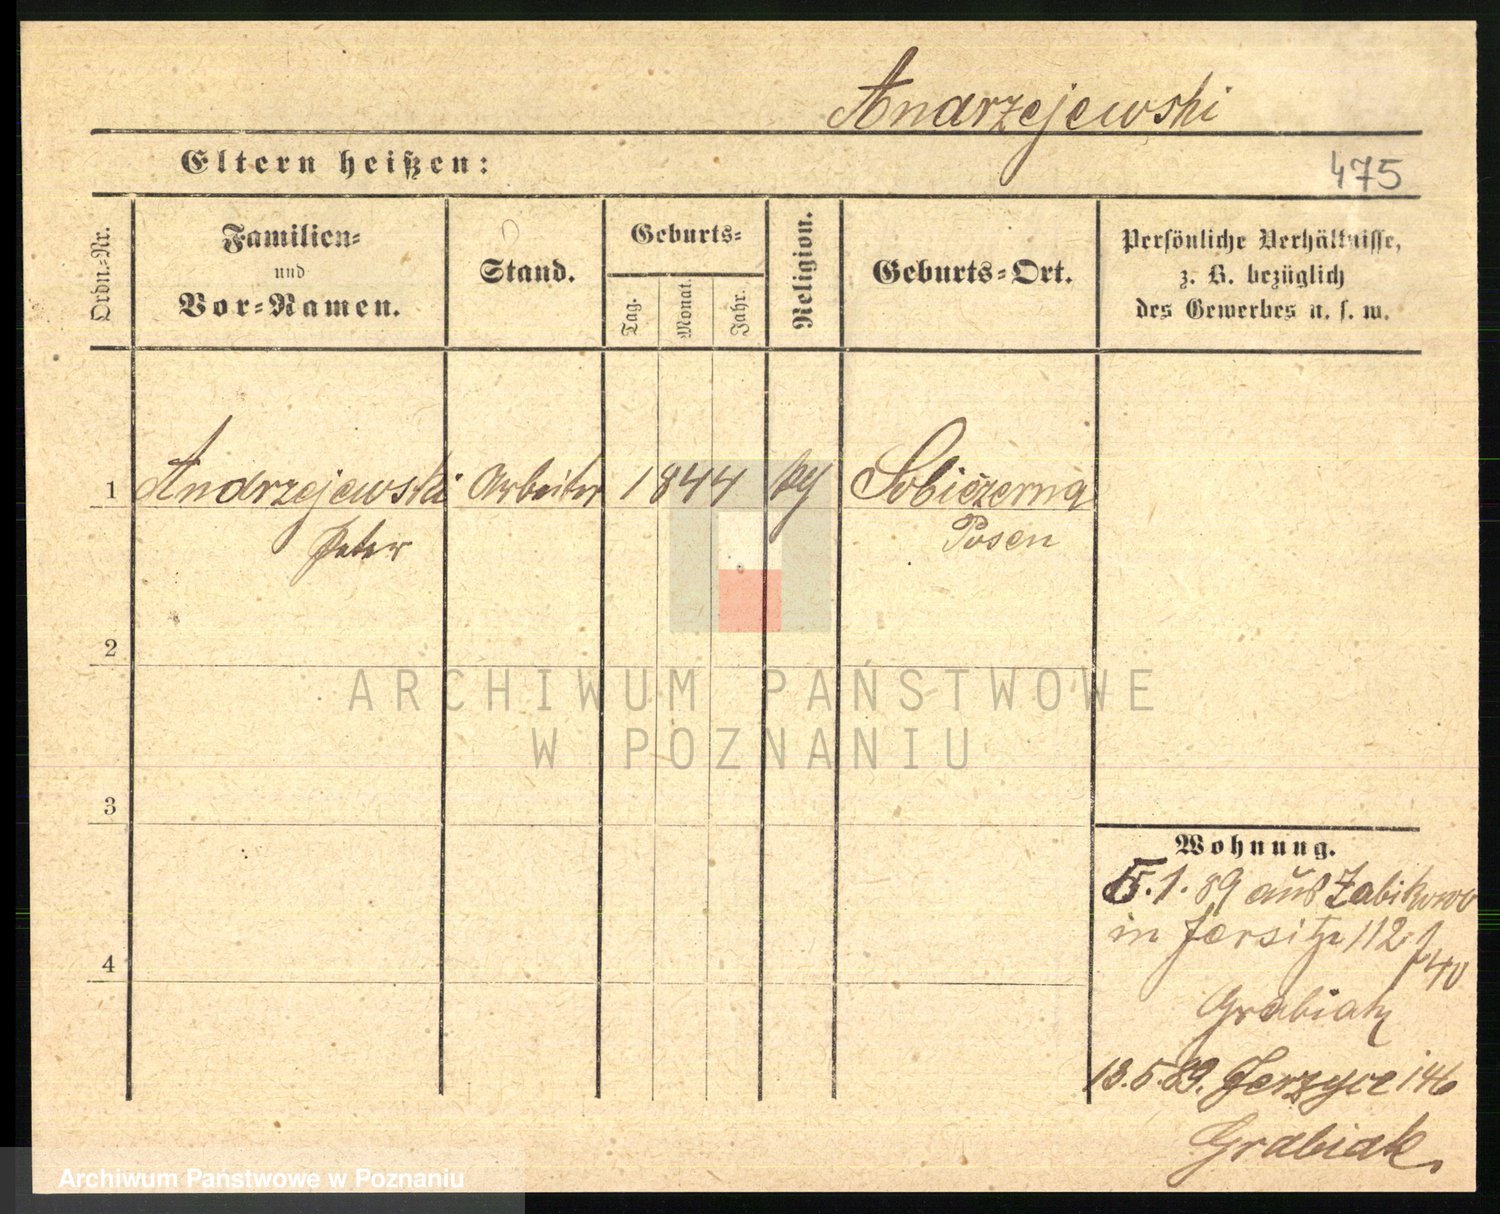 Andrzejewski
Eltern heißen:
475
Ordn.-Nr.
Familien-
und
Vor-Namen.
Stand.
Geburts-
Tag.
Monat.
Jahr.
Religion.
Geburts-Ort.
Persönliche Verhältnisse,
z. B. bezüglich
des Gewerbes u. s. w.
1 Andrzejewski Arbeiter 1844 Sobiezerna
Peter Posen
2
ARCHIWUM PAŃSTWOWE
W POZNANIU
3
Wohnung.
5.1.89 aus Zabikowo
in Jersitz 112
4
Grabiak
13.5.89. Jerzyce 146
Grabiak.
Archiwum Państwowe w Poznaniu